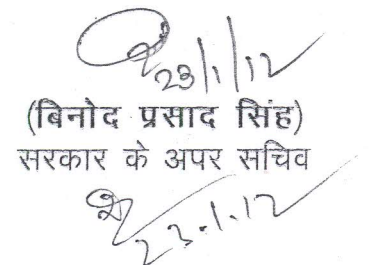 23/1/12
(बिनोद प्रसाद सिंह)
सरकार के अपर सचिव
23.1.12